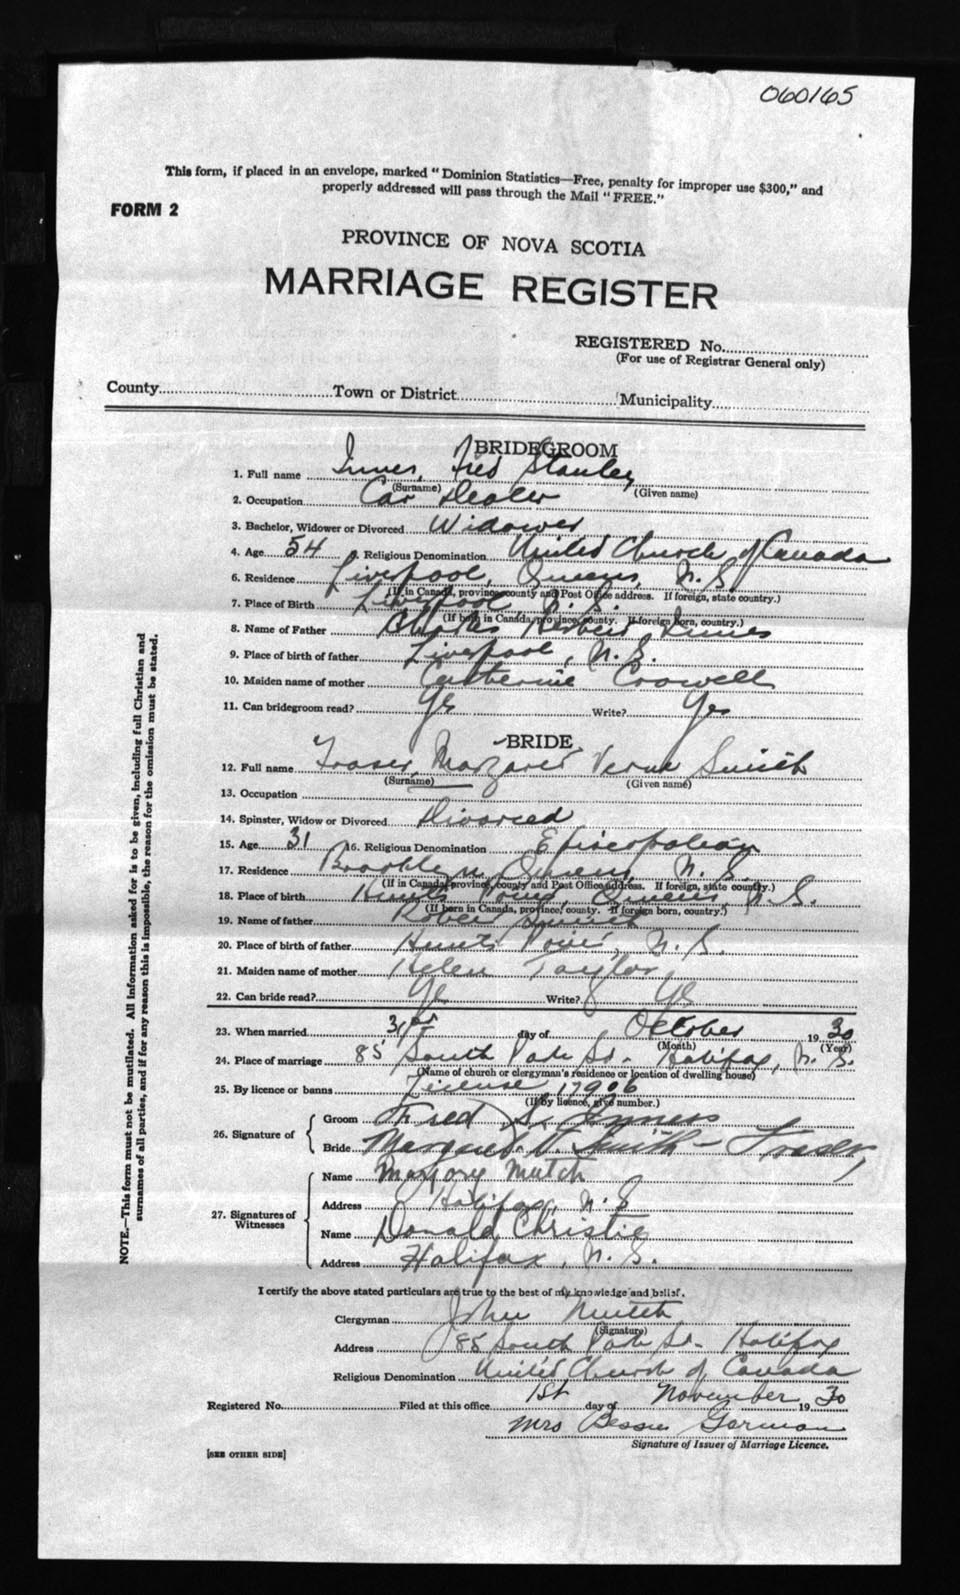 060165
This form, if placed in an envelope, marked "Dominion Statistics—Free, penalty for improper use $300," and
properly addressed will pass through the Mail "FREE."
FORM 2
PROVINCE OF NOVA SCOTIA
MARRIAGE REGISTER
REGISTERED No.
(For use of Registrar General only)
County Town or District Municipality
BRIDEGROOM
1. Full name Innes, Fred Stanley
(Surname) (Given name)
2. Occupation Car Dealer
3. Bachelor, Widower or Divorced Widower
4. Age 54 5. Religious Denomination United Church of Canada
6. Residence Liverpool, Queens, N.S.
(If in Canada, province, county and Post Office address. If foreign, state country.)
7. Place of Birth Liverpool, N.S.
(If born in Canada, province, county. If foreign born, country.)
8. Name of Father Charles Herbert Innes
9. Place of birth of father Liverpool, N.S.
10. Maiden name of mother Catherine Crowell
11. Can bridegroom read? Yes Write? Yes
BRIDE
12. Full name Fraser, Margaret Verna Smith
(Surname) (Given name)
13. Occupation
14. Spinster, Widow or Divorced Divorced
15. Age 31 16. Religious Denomination Episcopalian
17. Residence Brooklyn, Queens, N.S.
(If in Canada, province, county and Post Office address. If foreign, state country.)
18. Place of birth Hunts Point, Queens, N.S.
(If born in Canada, province, county. If foreign born, country.)
19. Name of father Robert Smith
20. Place of birth of father Hunts Point, N.S.
21. Maiden name of mother Helen Taylor
22. Can bride read? Yes Write? Yes
23. When married 31st day of October 1930
(Month) (Year)
24. Place of marriage 85 South Park St. Halifax, N.S.
(Name of church or clergyman's residence or location of dwelling house)
25. By licence or banns License 17906
(If by licence, give number.)
26. Signature of Groom Fred S. Inness
Bride Margaret V. Smith - Fraser
27. Signatures of Witnesses Name Marjory Mutch
Address Halifax, N.S
Name Donald Christie
Address Halifax, N.S.
I certify the above stated particulars are true to the best of my knowledge and belief.
Clergyman John Mutch
(Signature)
Address 85 South Park St. Halifax
Religious Denomination United Church of Canada
Registered No. Filed at this office 1st day of November 1930
Mrs Bessie Gorman
Signature of Issuer of Marriage Licence.
[SEE OTHER SIDE]
NOTE.—This form must not be mutilated. All information asked for is to be given, including full Christian and
surnames of all parties, and if for any reason this is impossible, the reason for the omission must be stated.